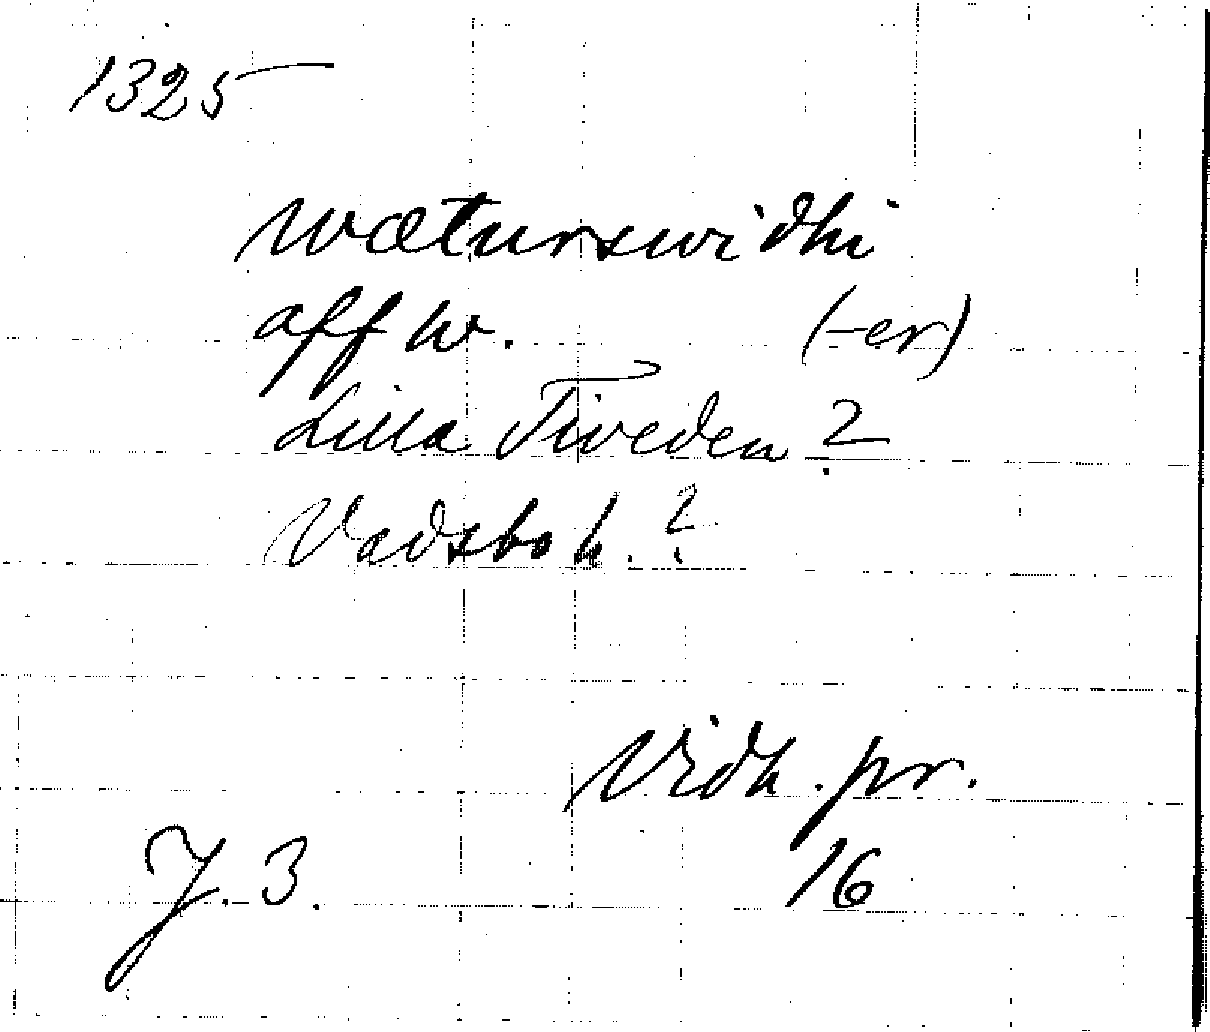 1325
wæturswidhi
aff w. (-er)
Lilla Tiveden ?
Vadsbo h. ?
Vidh. pr.
J. 3. 16